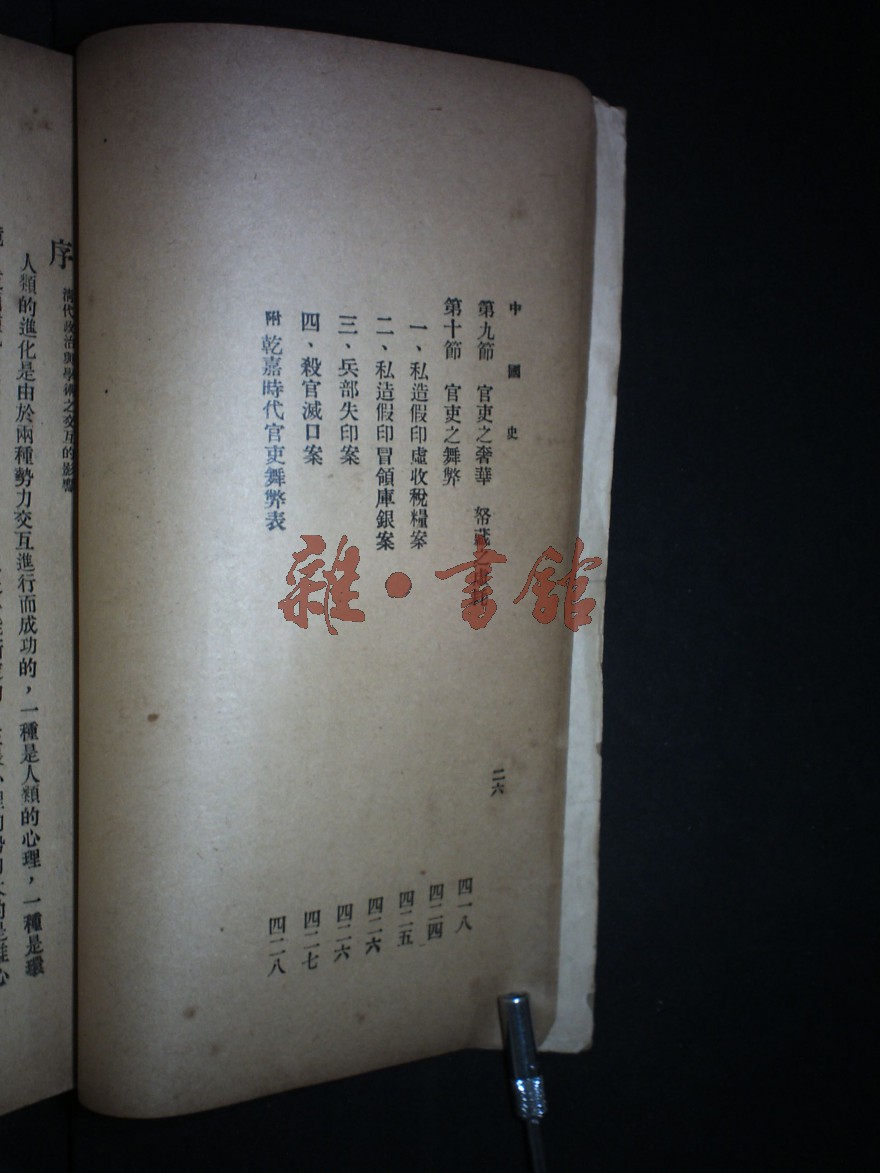 中國史
二六
第九節 官吏之奢華 帑藏之虛耗
四一八
第十節 官吏之舞弊
四二四
一、私造假印虛收稅糧案
四二五
二、私造假印冒領庫銀案
四二六
三、兵部失印案
四二六
四、殺官滅口案
四二七
附 乾嘉時代官吏舞弊表
四二八
雜·書館
清代政治與學術之交互的影響
序
人類的進化是由於兩種勢力交互進行而成功的，一種是人類的心理，一種是環